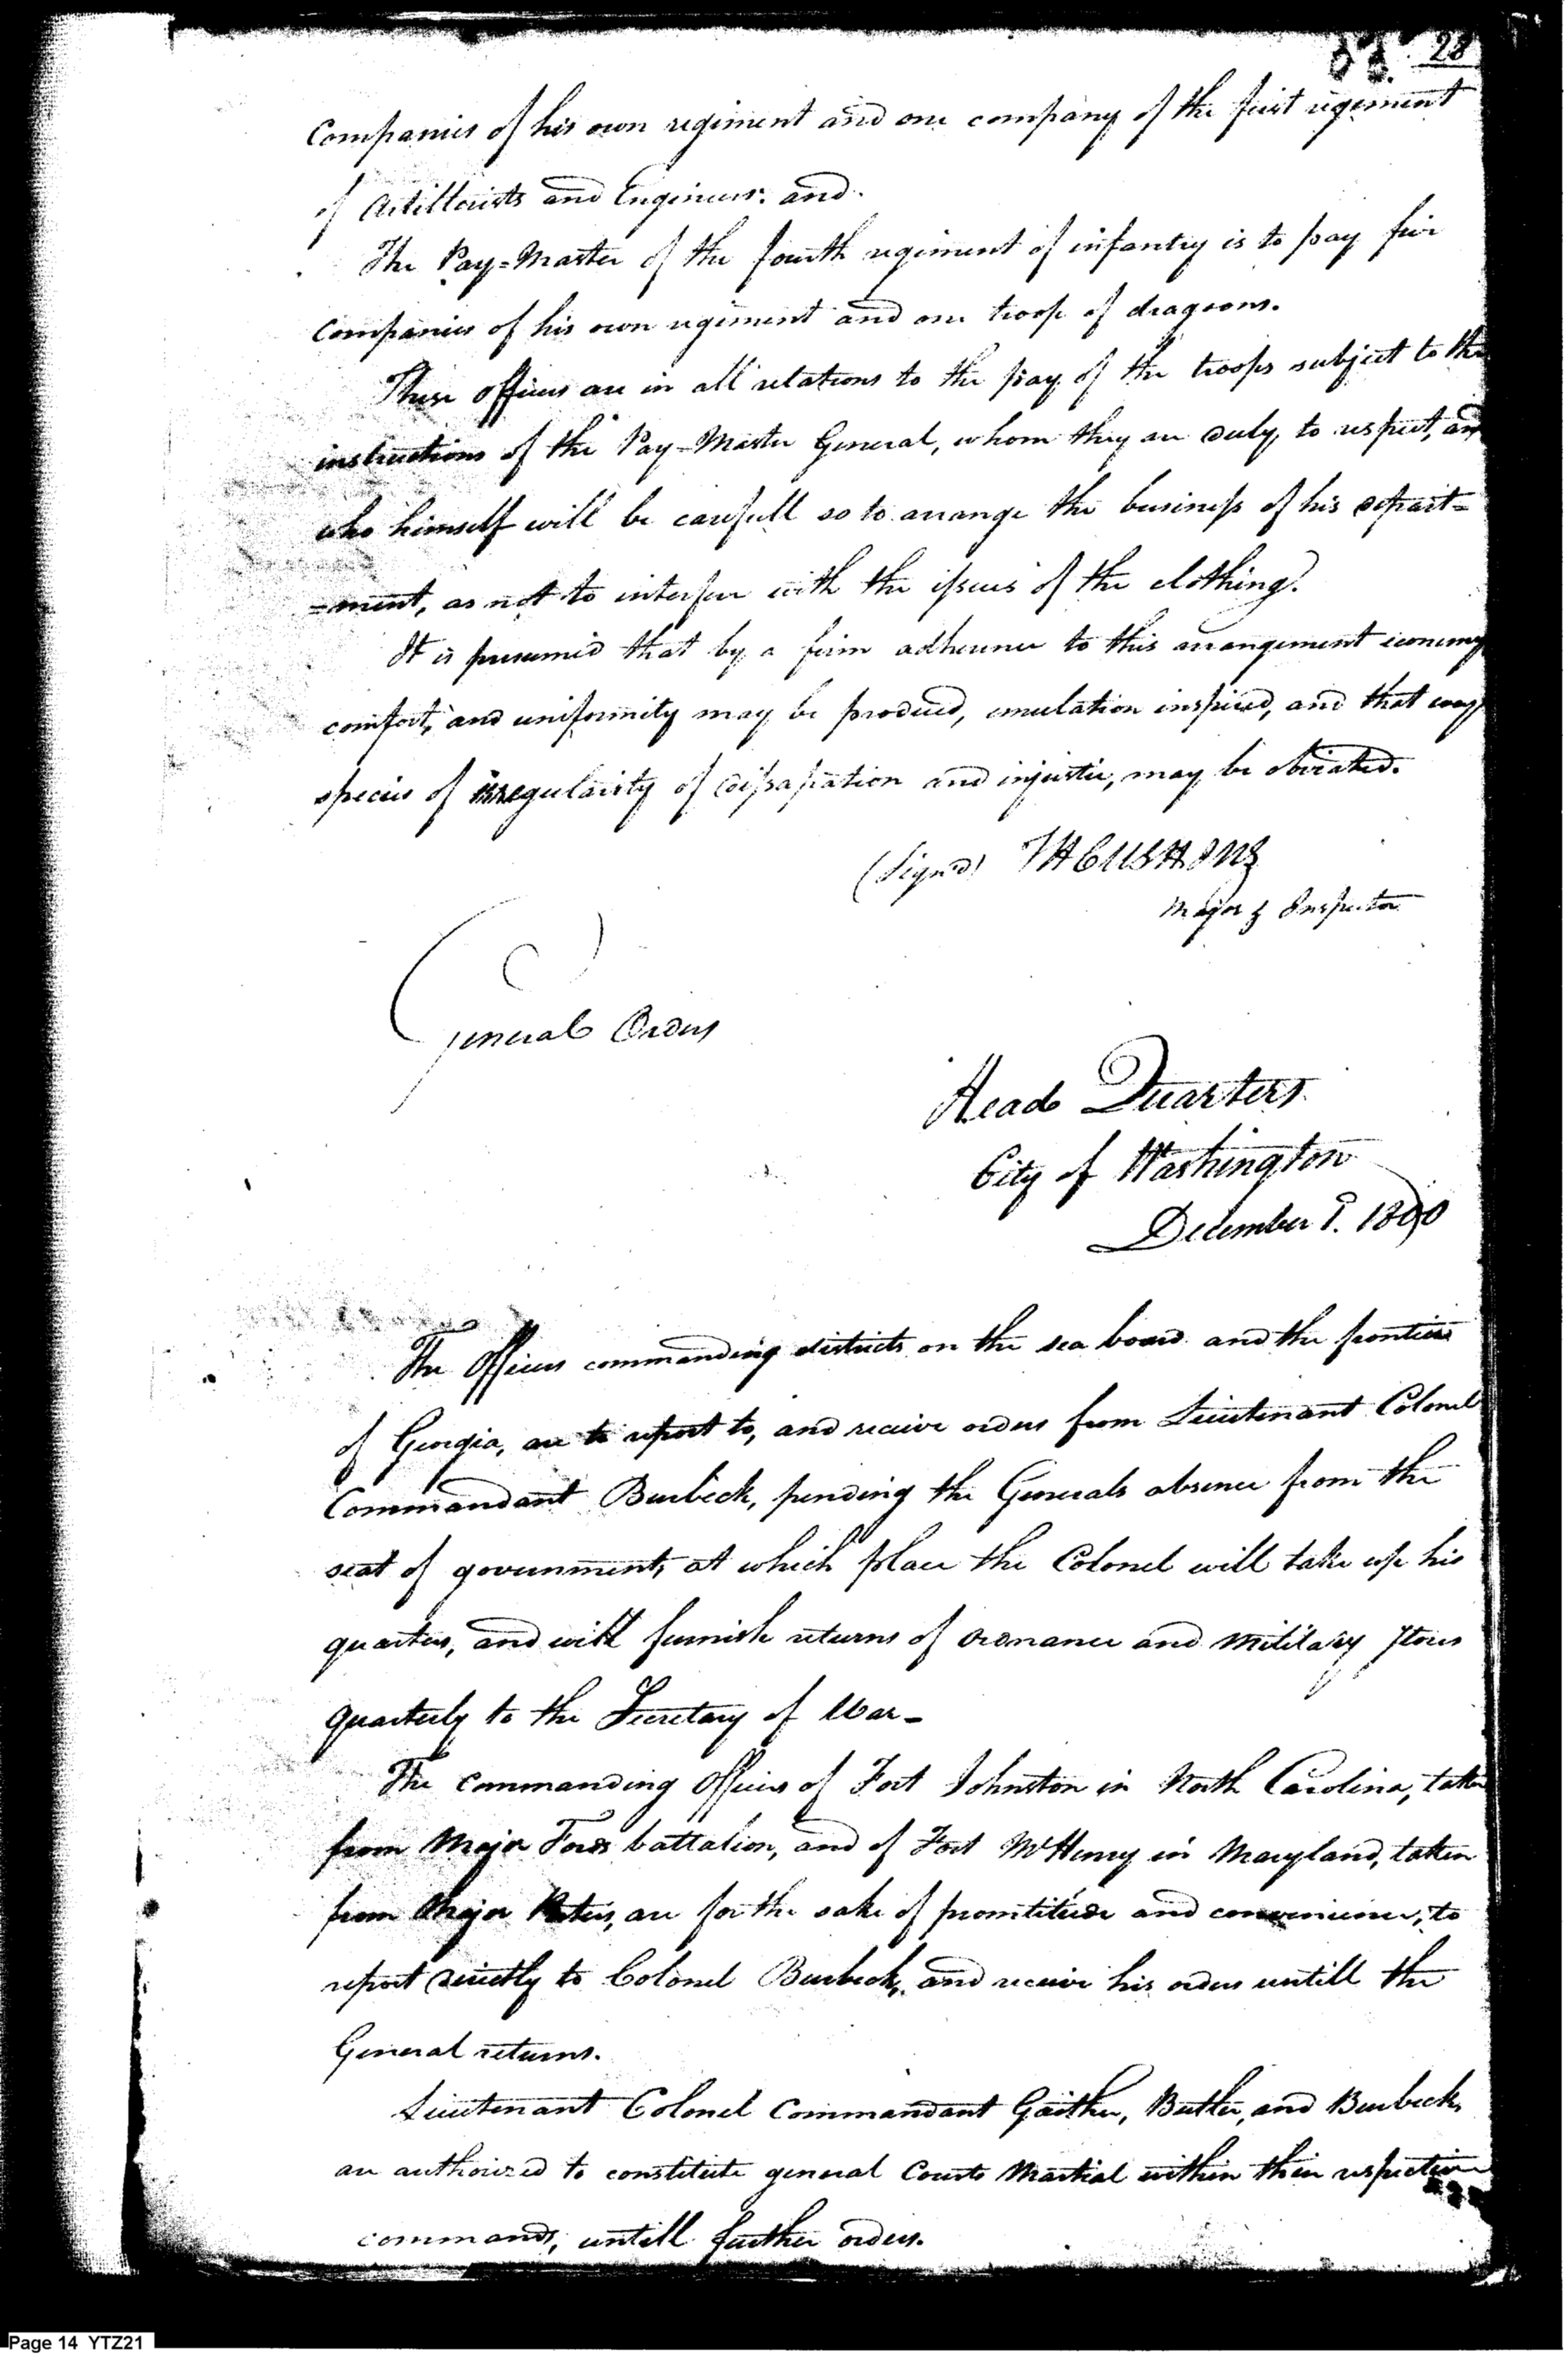 28
Companies of his own regiment and one company of the first regiment
of Artillerists and Engineers. and
The Pay=Master of the fourth regiment of infantry is to pay five
Companies of his own regiment and one troop of dragoons.
These officers are in all relations to the pay of the troops subject to the
instructions of the Pay=Master General, whom they are duly, to respect, and
who himself will be carefull so to arrange the business of his depart=
=ment, as not to interfere with the issues of the clothing.
It is presumed that by a firm adherence to this arrangement economy
comfort, and uniformity may be produced, emulation inspired, and that every
species of irregularity of dissapation and injustice, may be obviated.
(Signed) T H CUSHING
Major & Inspector
General Orders
Head Quarters
City of Washington
December 1. 1800
The Officers commanding districts on the sea board and the frontiers
of Georgia, are to report to, and receive orders from Lieutenant Colonel
Commandant Burbeck, pending the Generals absence from the
seat of government, at which place the Colonel will take up his
quarters, and will furnish returns of ordnance and military stores
quarterly to the Secretary of War -
The commanding Officers of Fort Johnston in North Carolina, taken
from Major Fords battalion, and of Fort McHenry in Maryland, taken
from Major Peters, are for the sake of promtitude and convenience, to
report directly to Colonel Burbeck, and receive his orders untill the
General returns.
Lieutenant Colonel Commandant Gaither, Butler, and Burbeck,
are authorized to constitute general Courts Martial within their respective
commands, untill further orders.
Page 14 YTZ21